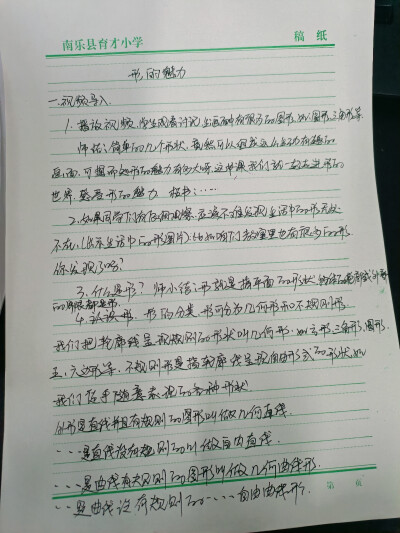 南乐县育才小学 稿 纸
形的魅力
一、视频导入
1. 播放视频，学生观看讨论，生活中有很多的图形，如：圆形、三角形等
师结：简单的几个形状，竟然可以组成这么生动有趣的
画面，可想而知形的魅力有多大，这节课我们就一起走进形的
世界，感受形的魅力 板书：……
2. 如果同学们仔细观察，应该不难发现生活中的形无处
不在，(出示生活中的形图片)：比如咱们教室里也有很多的形
你发现了吗？
3. 什么是形？ 师小结：形就是指平面的形状
的界限都是形
4. 认识形 形的分类 形可分为几何形和不规则形
我们把轮廓线呈现规则的形状叫几何形，如方形、三角形、圆形
五、六边形等，不规则形是指轮廓线呈现自由形式的形状，如
我们信手随意表现的各种形状
外形是直线并且有规则的图形叫做几何直线，
……是直线没有规则的叫做自由直线。
……是曲线有规则的图形叫做几何曲线形。
……是曲线没有规则的……自由曲线形。
第 页